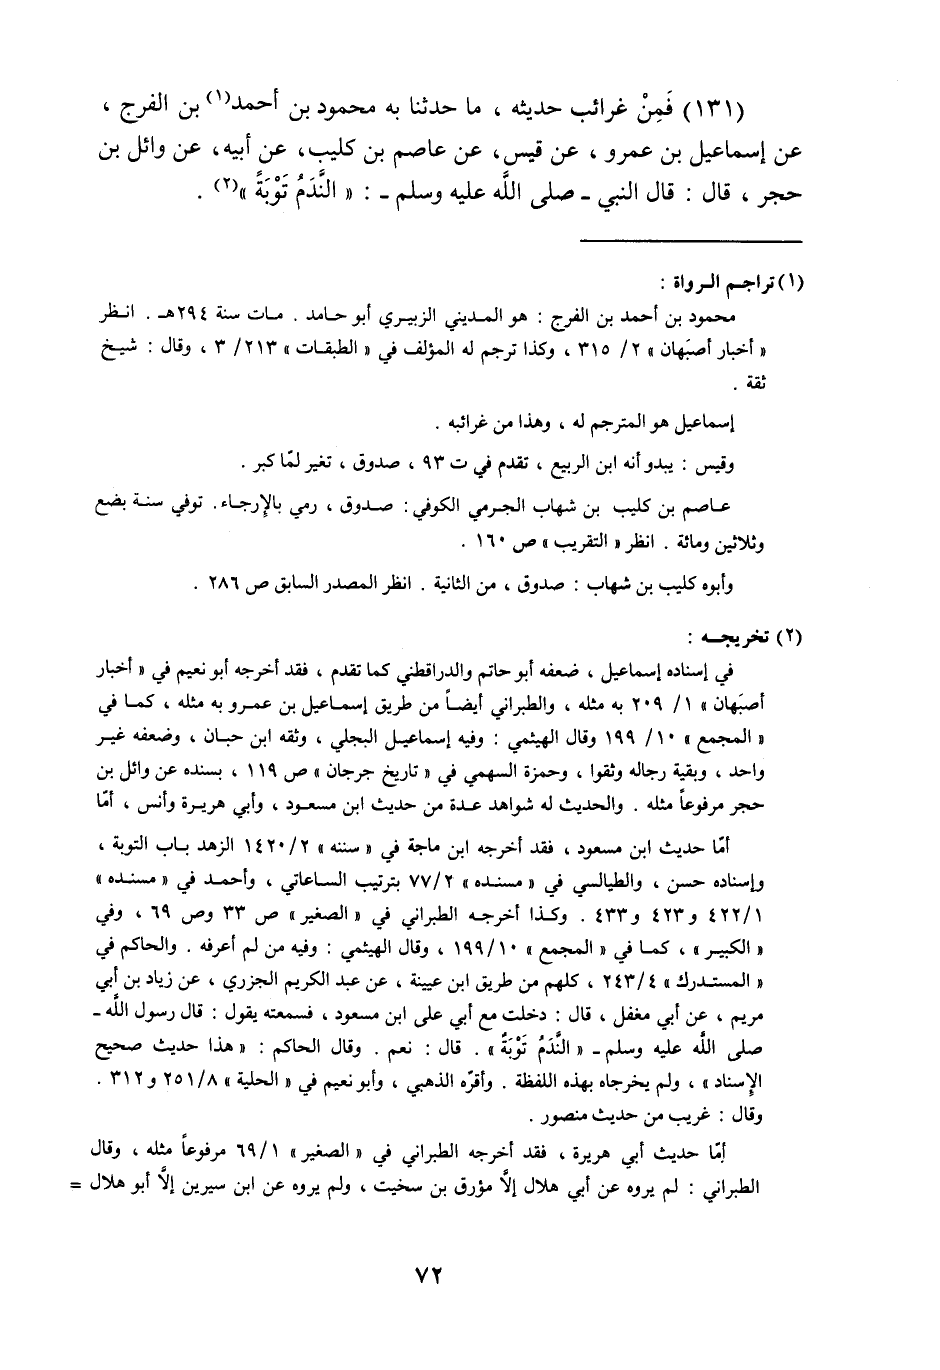 (١٣١) فَمِنْ غرائب حديثه ، ما حدثنا به محمود بن أحمد(١) بن الفرج ،
عن إسماعيل بن عمرو ، عن قيس، عن عاصم بن كليب، عن أبيه، عن وائل بن
حجر ، قال : قال النبي ـ صلى اللَّه عليه وسلم ـ : « النَّدَمُ تَوْبَةً »(٢) .
(١) تراجم الرواة :
محمود بن أحمد بن الفرج : هو المديني الزبيري أبو حامد . مات سنة ٢٩٤هـ . انظر
« أخبار أصبَهان » ٢/ ٣١٥ ، وكذا ترجم له المؤلف في « الطبقات » ٢١٣/ ٣ ، وقال : شيخ
ثقة .
إسماعيل هو المترجم له ، وهذا من غرائبه .
وقيس : يبدو أنه ابن الربيع ، تقدم في ت ٩٣ ، صدوق ، تغير لمّا كبر .
عاصم بن كليب بن شهاب الجرمي الكوفي : صدوق ، رمي بالإرجاء. توفي سنة بضع
وثلاثين ومائة . انظر « التقريب » ص ١٦٠ .
وأبوه كليب بن شهاب : صدوق ، من الثانية . انظر المصدر السابق ص ٢٨٦ .
(٢) تخريجه :
في إسناده إسماعيل ، ضعفه أبو حاتم والدراقطني كما تقدم ، فقد أخرجه أبو نعيم في « أخبار
أصبَهان » ١/ ٢٠٩ به مثله ، والطبراني أيضاً من طريق إسماعيل بن عمرو به مثله ، كما في
« المجمع » ١٠/ ١٩٩ وقال الهيثمي : وفيه إسماعيل البجلي ، وثقه ابن حبان ، وضعفه غير
واحد ، وبقية رجاله وثقوا ، وحمزة السهمي في « تاريخ جرجان » ص ١١٩ ، بسنده عن وائل بن
حجر مرفوعاً مثله . والحديث له شواهد عدة من حديث ابن مسعود ، وأبي هريرة وأنس ، أمّا
أمّا حديث ابن مسعود ، فقد أخرجه ابن ماجة في « سننه » ١٤٢٠/٢ الزهد باب التوبة ،
وإسناده حسن ، والطيالسي في « مسنده » ٧٧/٢ بترتيب الساعاتي ، وأحمد في « مسنده »
٤٢٢/١ و٤٢٣ و٤٣٣ . وكذا أخرجه الطبراني في « الصغير » ص ٣٣ وص ٦٩ ، وفي
« الكبير » ، كما في « المجمع » ١٩٩/١٠ ، وقال الهيثمي : وفيه من لم أعرفه . والحاكم في
« المستدرك » ٢٤٣/٤ ، كلهم من طريق ابن عيينة ، عن عبد الكريم الجزري ، عن زياد بن أبي
مريم ، عن أبي مغفل ، قال : دخلت مع أبي على ابن مسعود ، فسمعته يقول : قال رسول اللَّه ـ
صلى اللَّه عليه وسلم ـ « النَّدَمُ تَوْبَةٌ » . قال : نعم . وقال الحاكم : « هذا حديث صحيح
الإسناد » ، ولم يخرجاه بهذه اللفظة . وأقرّه الذهبي ، وأبو نعيم في « الحلية » ٢٥١/٨ و٣١٢ .
وقال : غريب من حديث منصور .
أمّا حديث أبي هريرة ، فقد أخرجه الطبراني في « الصغير » ٦٩/١ مرفوعاً مثله ، وقال
الطبراني : لم يروه عن أبي هلال إلَّا مؤرق بن سخيت ، ولم يروه عن ابن سيرين إلَّا أبو هلال =
٧٢